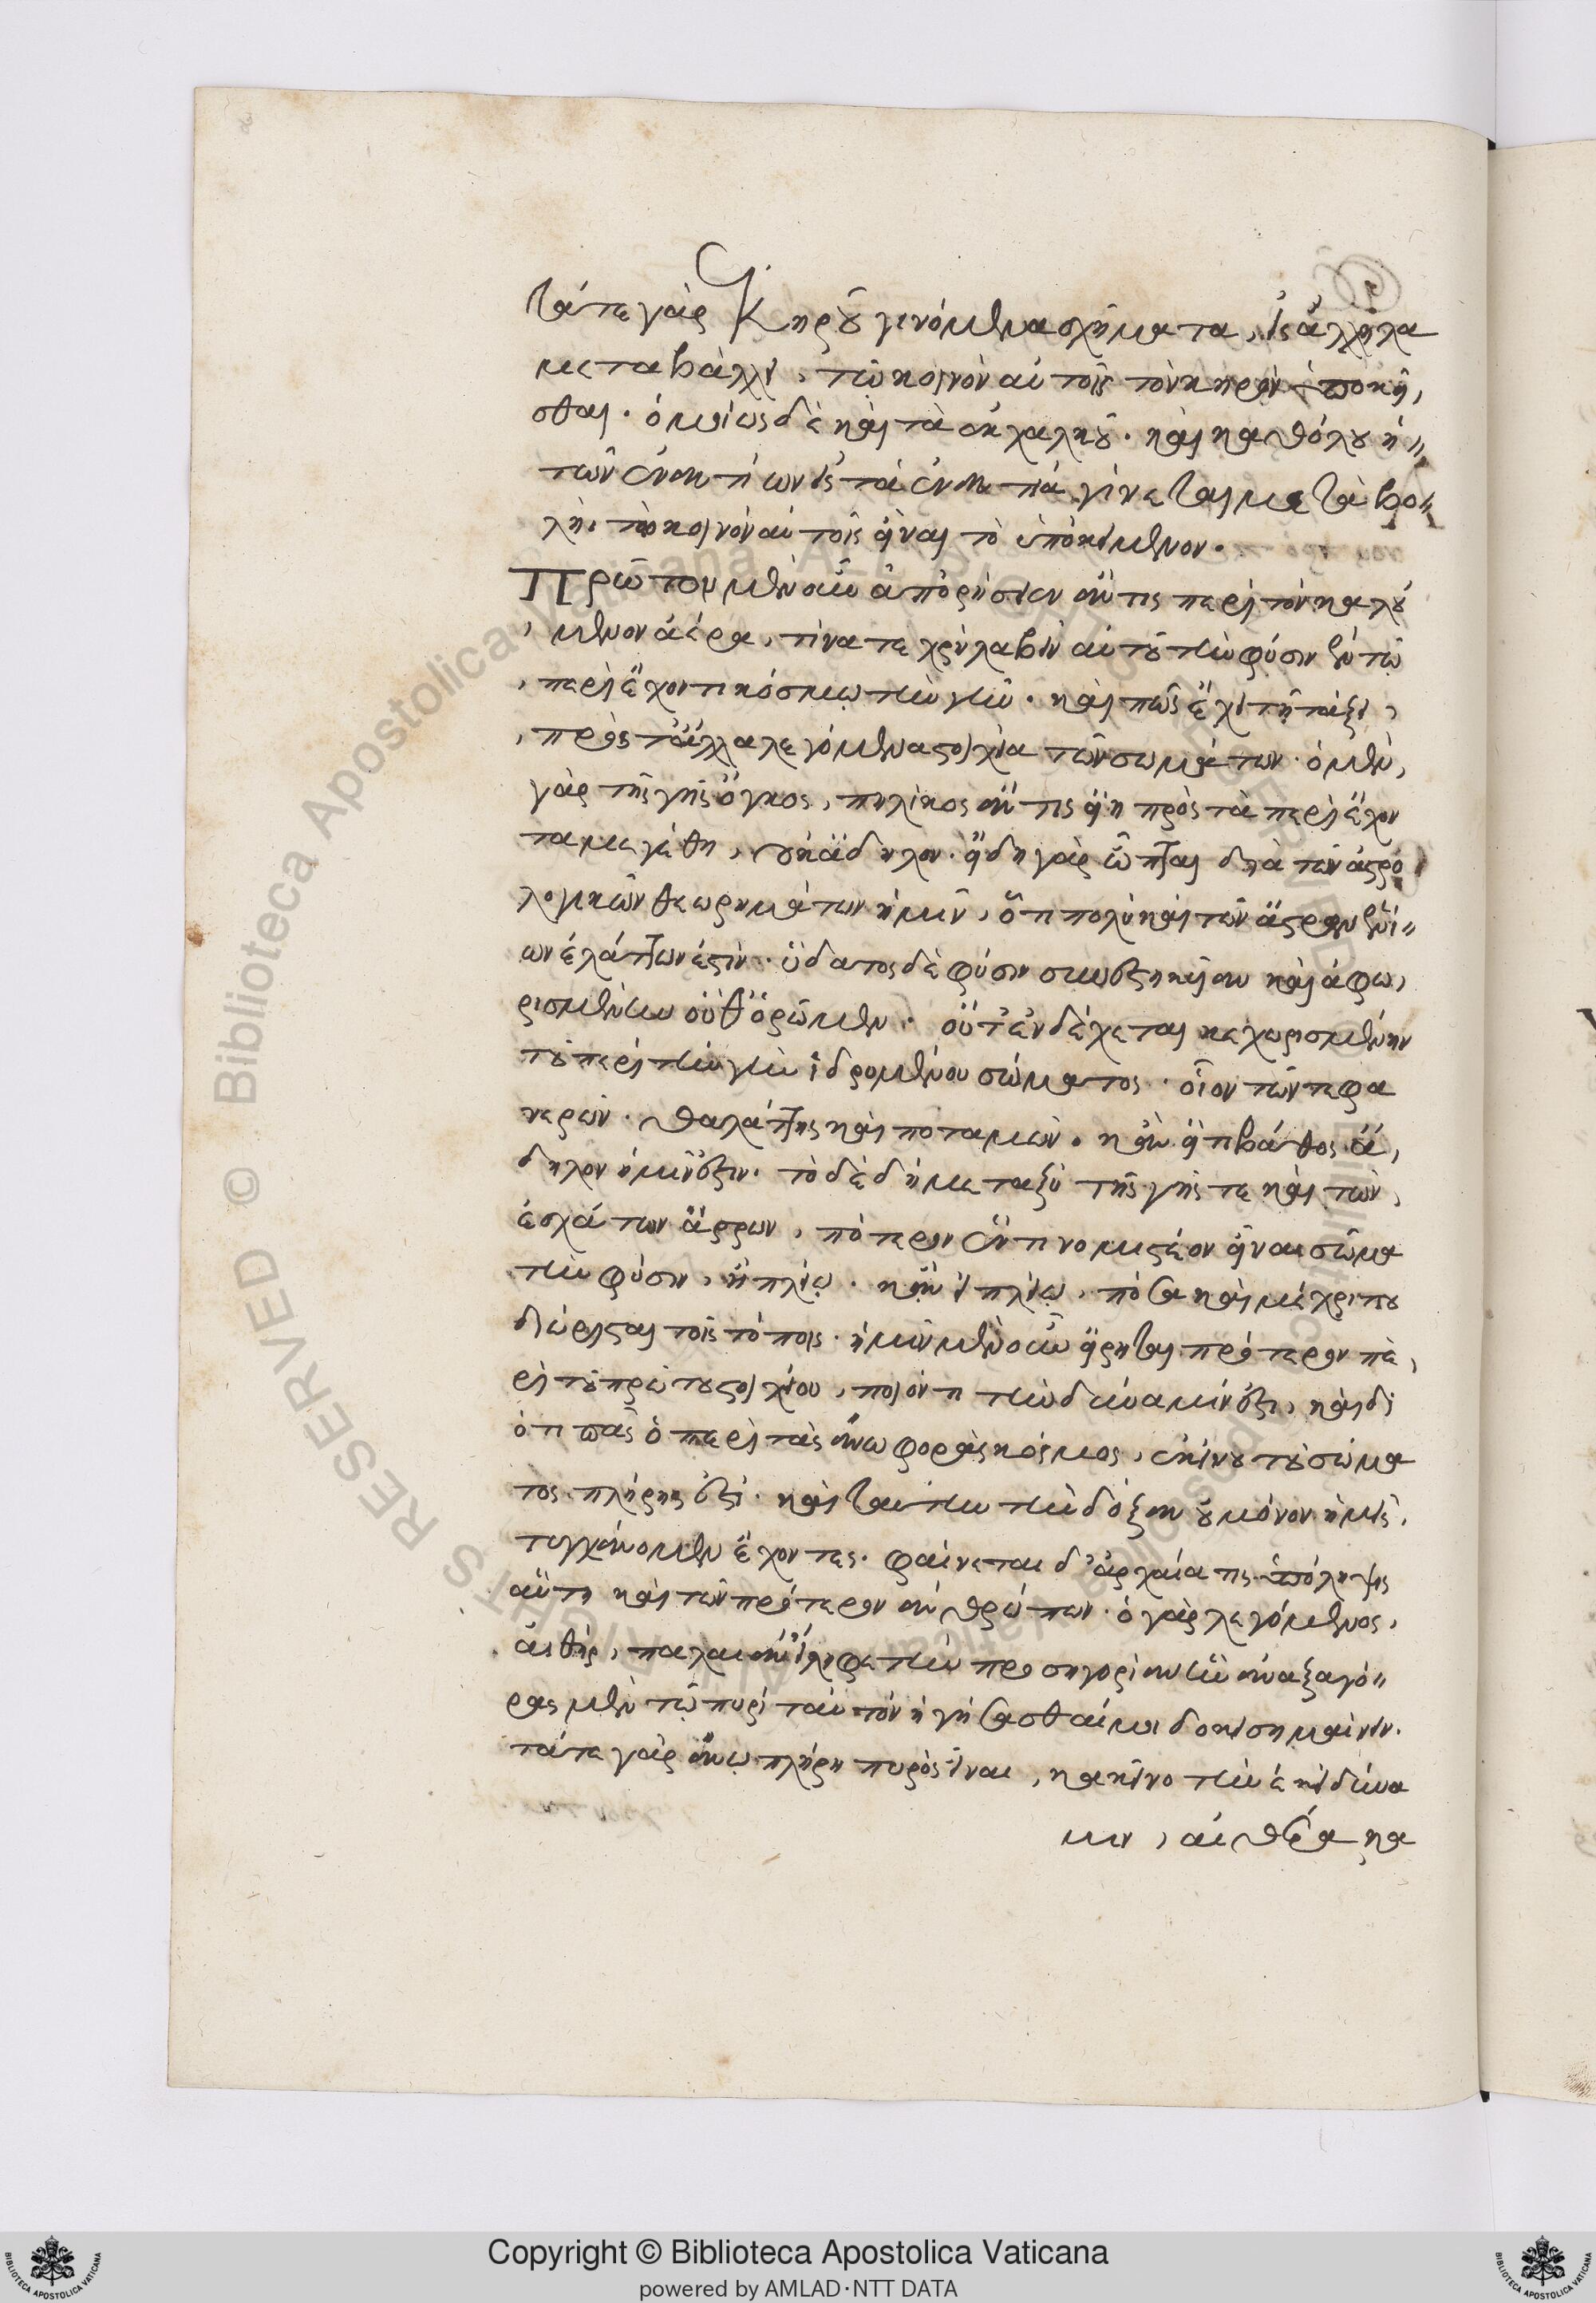 τά τε γὰρ κηροῦ γινόμενα σχήματα, εἰς ἄλληλα
μεταβάλλει, τῷ κοινὸν αὐτοῖς τὸν κηρὸν ὑποκεῖ,
σθαι. ὁμοίως δὲ καὶ τὰ ἐκ χαλκοῦ. καὶ καθόλου ἡ
τῶν ἐναντίων εἰς τὰ ἐναντία γίνεται μεταβο
λὴ. τὸ κοινὸν αὐτοῖς εἶναι τὸ ὑποκείμενον.
Πρῶτον μὲν οὖν ἀπορήσειεν ἄν τις περὶ τὸν καλού
μενον ἀέρα, τίνα τε χρὴ λαβεῖν αὐτοῦ τὴν φύσιν ἐν τῷ
περιέχοντι κόσμῳ τὴν γῆν. καὶ πῶς ἔχει τῇ τάξει,
πρὸς τἄλλα λεγόμενα στοιχεῖα τῶν σωμάτων. ὁ μὲν,
γὰρ τῆς γῆς ὄγκος, πηλίκος ἄν τις εἴη πρὸς τὰ περιέχον
τα μεγέθη, οὐκ ἄδηλον. ἤδη γὰρ ὦπται διὰ τῶν ἀστρο
λογικῶν θεωρημάτων ἡμῖν, ὅτι πολὺ καὶ τῶν ἄστρων ἐνί
ων ἐλάττων ἐστίν. ὕδατος δὲ φύσιν συνεστηκυῖαν καὶ ἀφω,
ρισμένην οὐθ' ὁρῶμεν. οὔτ' ἐνδέχεται κεχωρισμένην
τοῦ περὶ τὴν γῆν ἱδρυμένου σώματος. οἷον τῶν τε φα
νερῶν. θαλάττης καὶ ποταμῶν. κἂν εἴ τι βάθος ἄ,
δηλον ἡμῖν ἐστιν. τὸ δὲ δὴ μεταξὺ τῆς γῆς τε καὶ τῶν,
ἐσχάτων ἄστρων, πότερον ἕν τι νομιστέον εἶναι σῶμα
τὴν φύσιν, ἢ πλείω. κἂν εἰ πλείω, πόσα καὶ μέχρι που
διώρισται τοῖς τόποις. ἡμῖν μὲν οὖν εἴρηται πρότερον πε,
ρὶ τοῦ πρώτου στοιχείου, ποῖόν τι τὴν δύναμίν ἐστι, καὶ δι
ότι πᾶς ὁ περὶ τὰς ἄνω φορὰς κόσμος, ἐκείνου τοῦ σώμα
τος πλήρης ἐστί. καὶ ταύτην τὴν δόξαν οὐ μόνον ἡμεῖς,
τυγχάνομεν ἔχοντες. φαίνεται δ' ἀρχαία τις ὑπόληψις
αὕτη καὶ τῶν πρότερον ἀνθρώπων. ὁ γὰρ λεγόμενος,
αἰθὴρ, παλαιὰν εἴληφε τὴν προσηγορίαν ἣν ἀναξαγό
ρας μὲν τῷ πυρὶ ταὐτὸν ἡγήσασθαί μοι δοκεῖ σημαίνειν.
τά τε γὰρ ἄνω πλήρη πυρὸς εἶναι, κακεῖνο τὴν ἐκεῖ δύνα
μιν, αἰθέρα κα
Copyright © Biblioteca Apostolica Vaticana
powered by AMLAD·NTT DATA